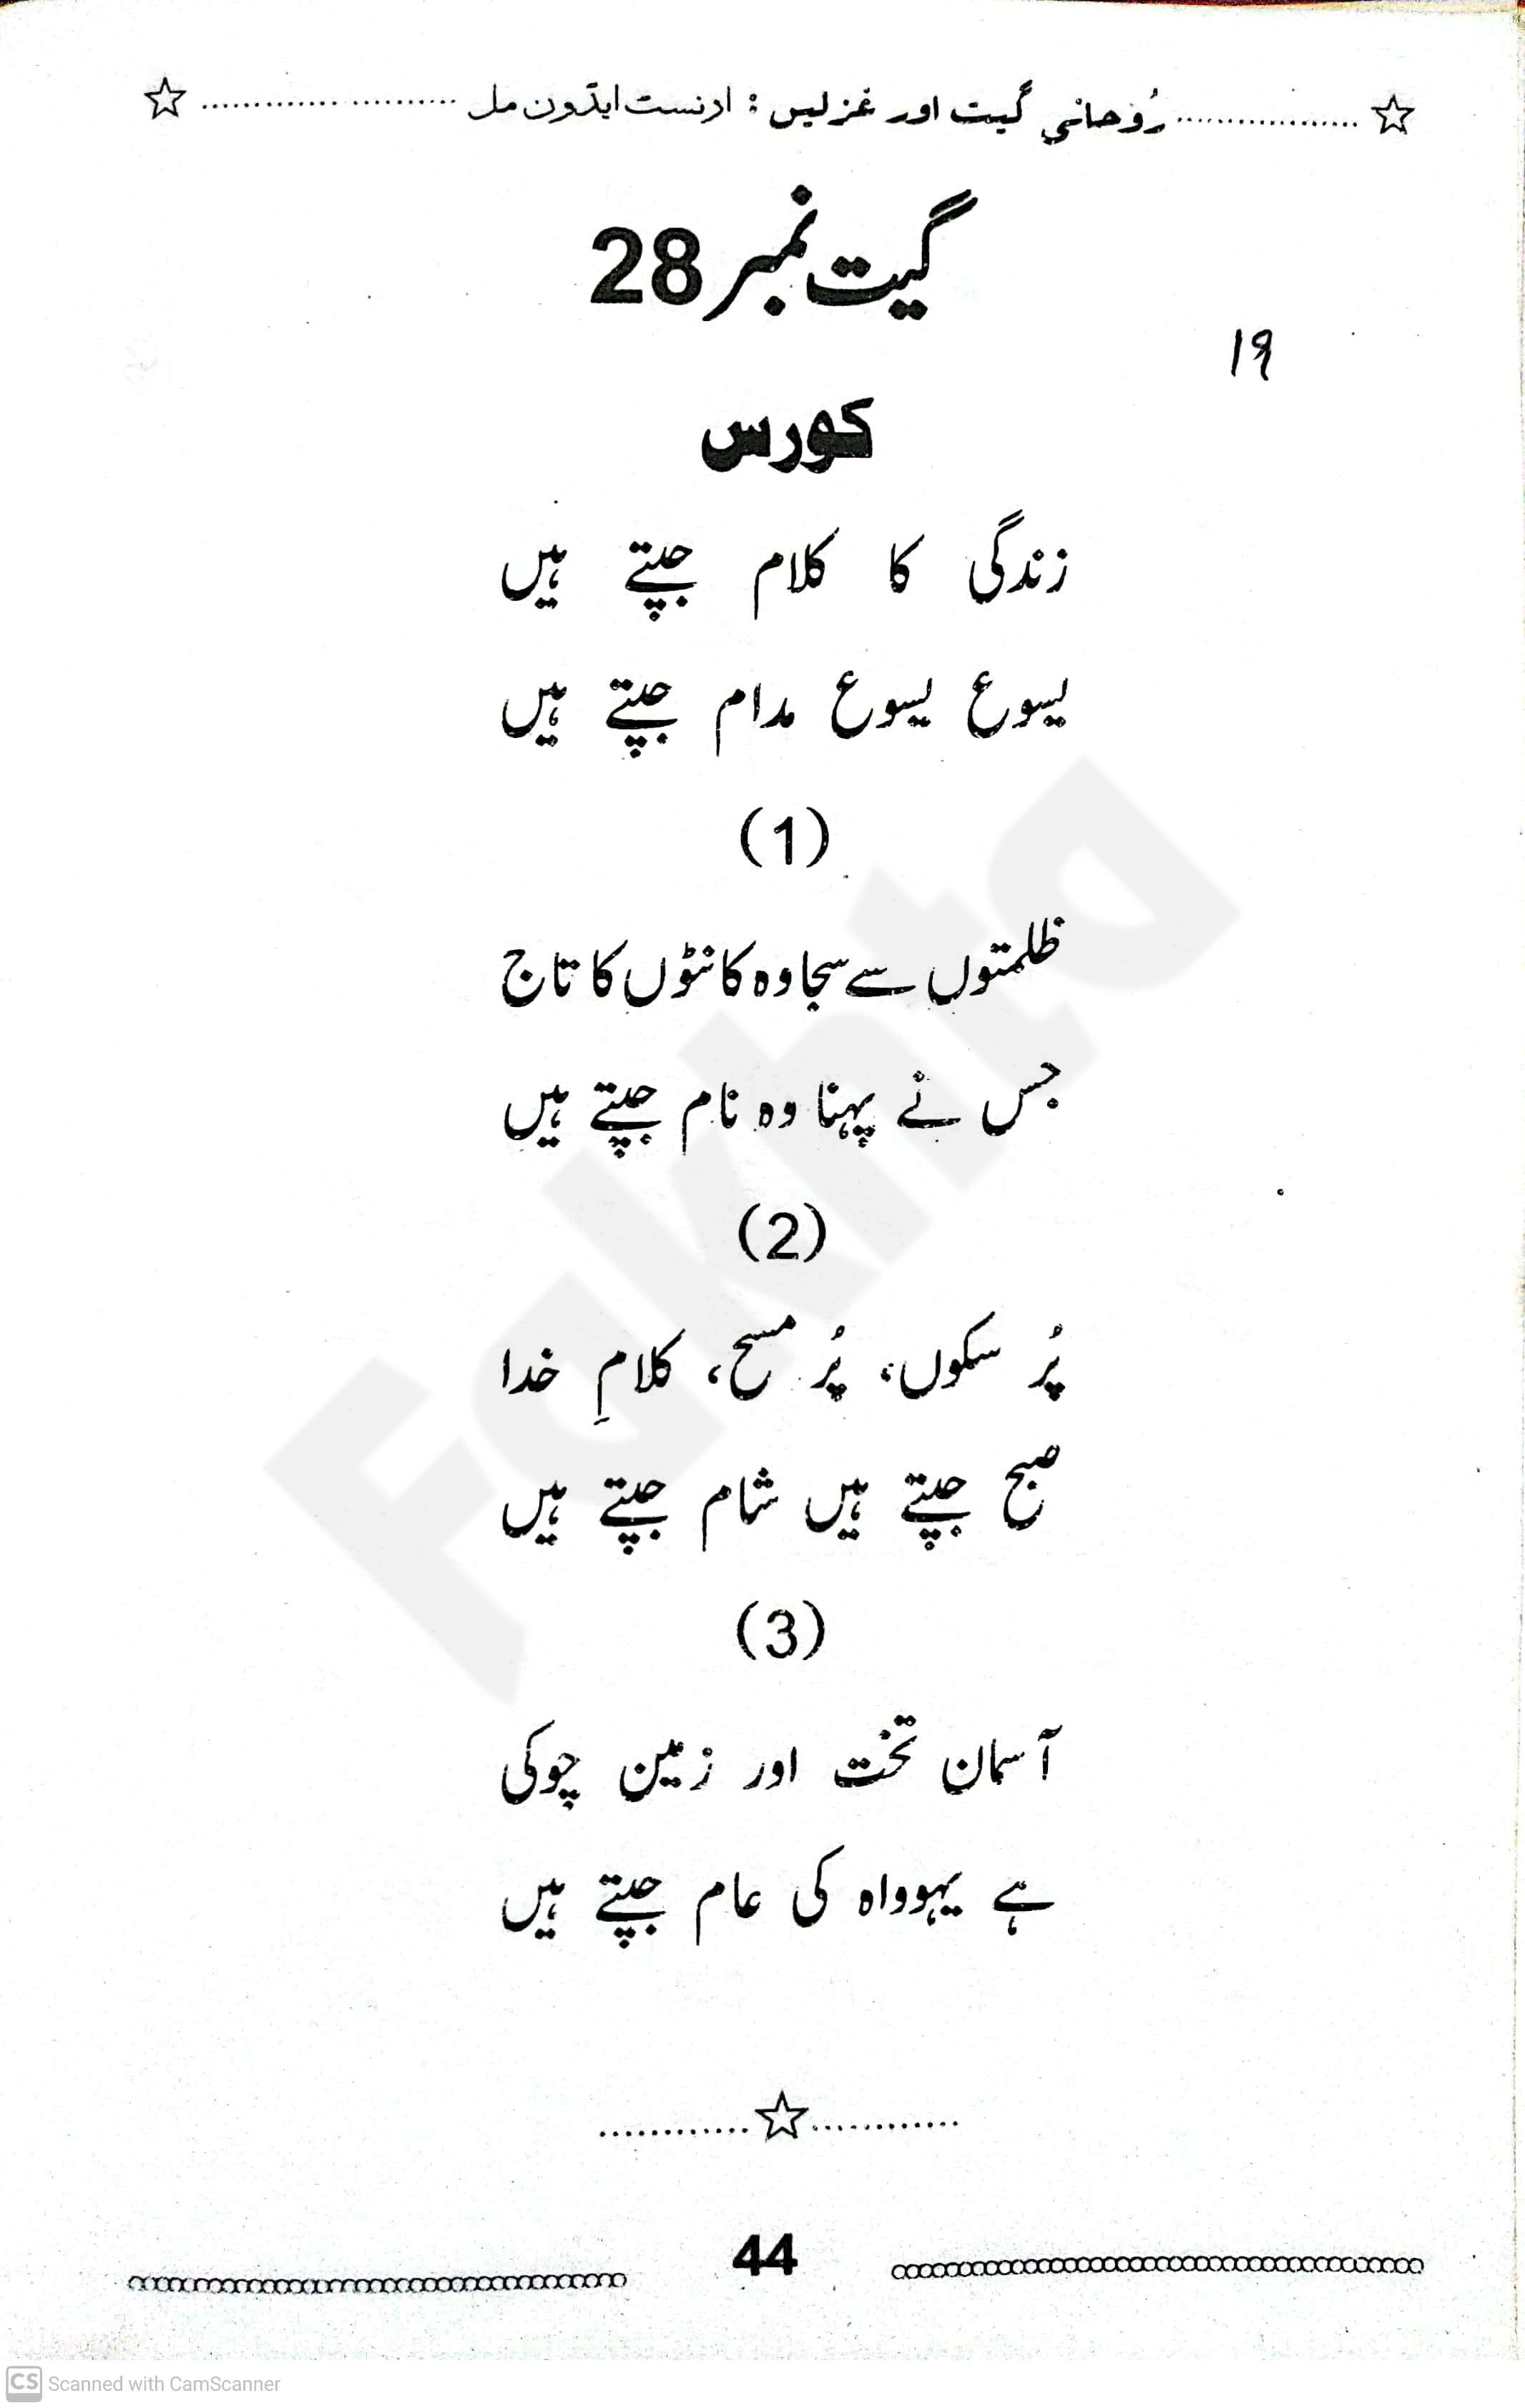 رُوحانی گیت اور غزلیں : ارنسٹ ایڈون مل
گیت نمبر 28
۱۹
کورس
زندگی کا کلام جپتے ہیں
یسوع یسوع مدام جپتے ہیں
(1)
ظلمتوں سے سجا وہ کانٹوں کا تاج
جس نے پہنا وہ نام جپتے ہیں
(2)
پُر سکوں، پُر مسح، کلامِ خدا
صبح جپتے ہیں شام جپتے ہیں
(3)
آسمان تخت اور زمین چوکی
ہے یہوواہ کی عام جپتے ہیں
44
Fakhta
CS Scanned with CamScanner